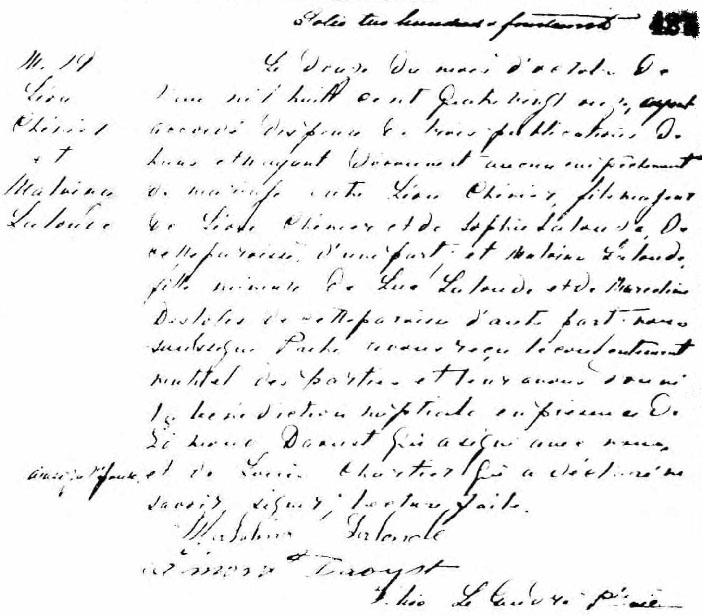 Folio two hundred & fourteenth
M. 19
Léon
Chénier
et
Malvina
Lalonde
Le douze du mois d'octobre de
l'an mil huit cent quatre vingt onze, ayant
accordé dispense de trois publications de
bans et n'ayant découvert aucun empêchement
de mariage entre Léon Chénier, fils majeur
de Léon Chénier et de Sophie Lalonde, de
cette paroisse, d'une part; et Malvina Lalonde,
fille mineure de Luc Lalonde et de Marceline
de cette paroisse d'autre part nous
soussigné avons reçu le consentement
mutuel des parties et leur avons donné
la bénédiction nuptiale en présence de
Daoust qui a signé avec nous,
ainsi que l'épouse, et de Louis Chartier qui a déclaré ne
savoir signer; lecture faite.
Malvina Lalonde
Daoust